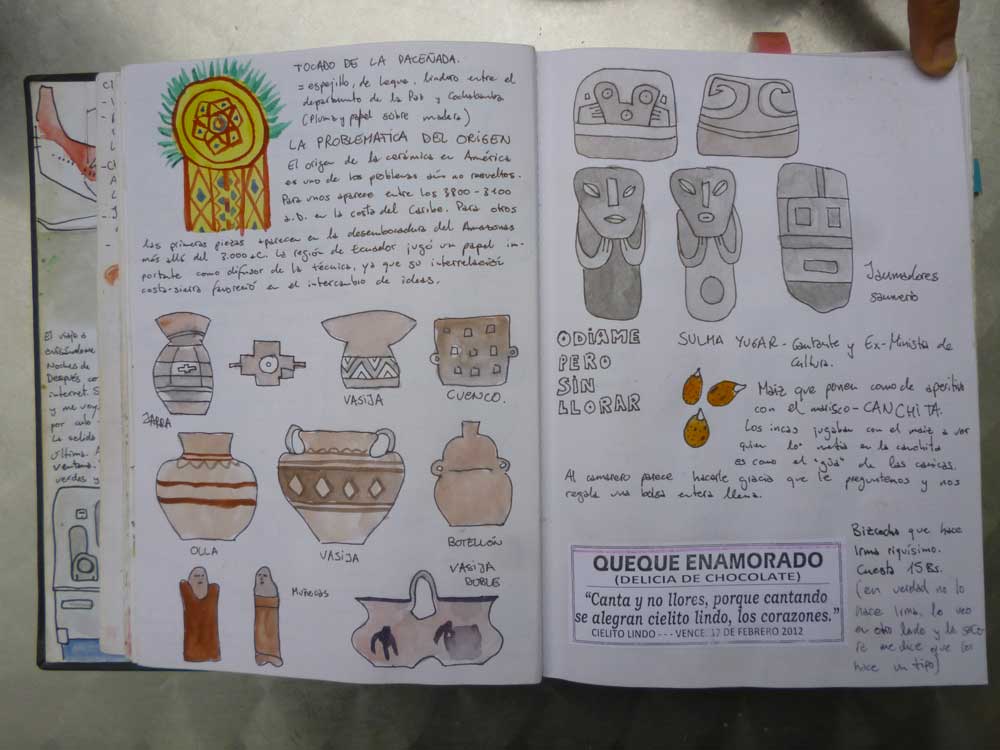 TOCADO DE LA PACEÑADA.
= espejillo, de Leque, lindero entre el
departamento de la Paz y Cochabamba
(Pluma y papel sobre madera)
LA PROBLEMATICA DEL ORIGEN
El origen de la cerámica en América
es uno de los problemas aún no resueltos.
Para unos aparece entre los 3800 - 3100
a.D. en la costa del Caribe. Para otros
las primeras piezas aparecen en la desembocadura del Amazonas
más allá del 3.000 a.C. La región de Ecuador jugó un papel im-
portante como difusor de la técnica, ya que su interrelación
costa-sierra favoreció en el intercambio de ideas.
VASIJA
CUENCO.
OLLA
VASIJA
BOTELLÓN
VASIJA
DOBLE
Muñecas
El viaje
Noches de
Después
internet.
y me voy
por
La salida
última.
ventana.
verdes y
Saumadores
saumerio
ODÍAME
PERO
SIN
LLORAR
SULMA YUGAR - Cantante y Ex-Ministra de
Cultura.
Maiz que ponen como de aperitivo
con el marisco - CANCHITA.
Los incas jugaban con el maiz a ver
quien lo metía en la canchita
es como el "gua" de las canicas.
Al camarero parece hacerle gracia que le preguntemos y nos
regala una bolsa entera llena.
Bizcocho que hace
Irma riquísimo.
Cuesta 15 Bs.
(en verdad no lo
hace Irma, lo veo
en otro lado y la
me dice que los
hace un tipo)
QUEQUE ENAMORADO
(DELICIA DE CHOCOLATE)
"Canta y no llores, porque cantando
se alegran cielito lindo, los corazones."
CIELITO LINDO - - - VENCE: 17 DE FEBRERO 2012